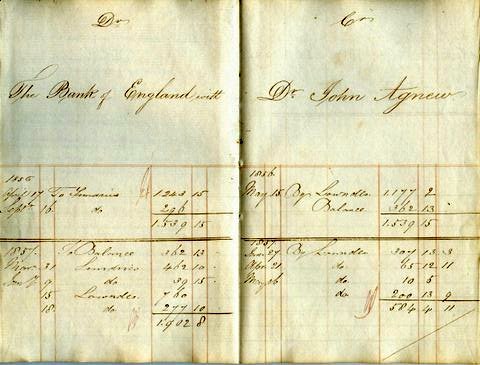 Dr
The Bank of England with
1856
April 17 To Sundries 1243 15
Septr 16 do 296
1.539 15
1857 To Balance 362 13
31 Sundries 462 10
9 do 39 15
15 Lowndes 760
18 do 277 10
1.902 8
Cr
Dr John Agnew
1856
May 15 By Lowndes 1.177 2
Balance 362 13
1.539 15
1857
27 By Lowndes 307 13 3
21 do 65 12 11
May 26 do 10 5
do 200 13 9
584 4 11